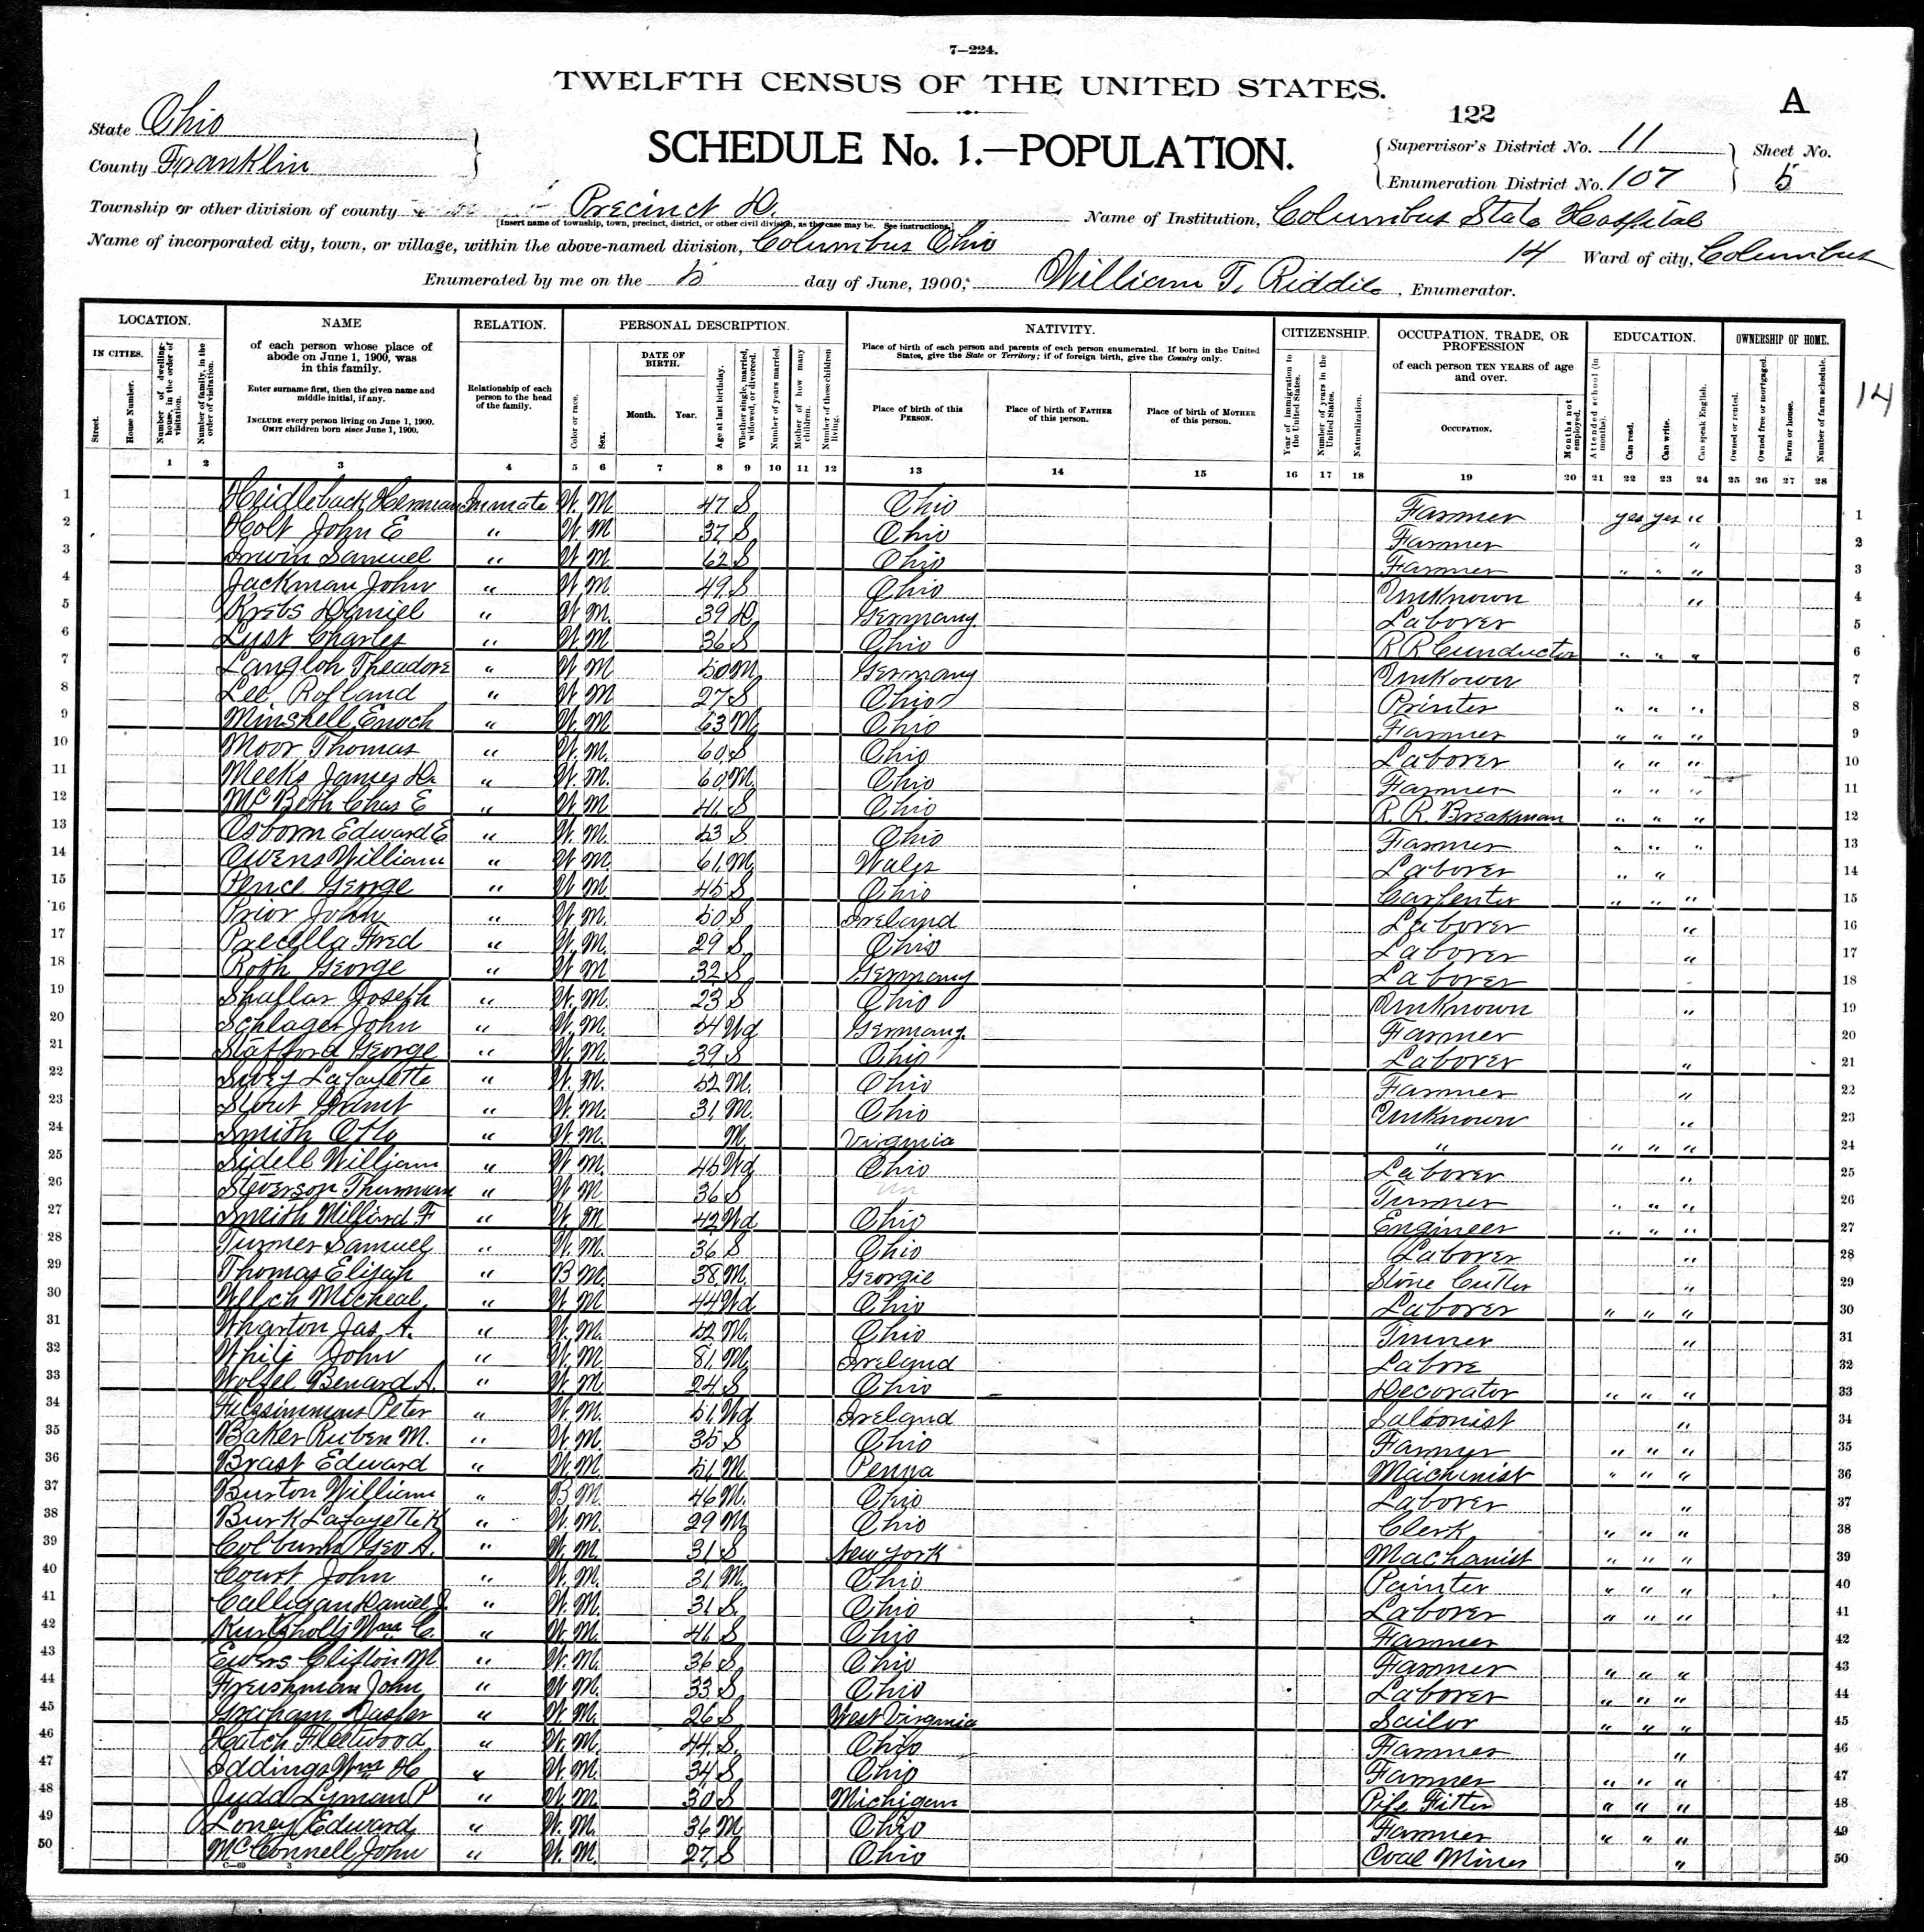 7—224.
TWELFTH CENSUS OF THE UNITED STATES.
122
A
State Ohio
County Franklin
SCHEDULE No. 1.—POPULATION.
Supervisor's District No. 11
Enumeration District No. 107
Sheet No.
5
Township or other division of county Precinct D.
[Insert name of township, town, precinct, district, or other civil division, as the case may be. See instructions.]
Name of Institution, Columbus State Hospital
Name of incorporated city, town, or village, within the above-named division, Columbus Ohio
14 Ward of city, Columbus
Enumerated by me on the 5 day of June, 1900; William T. Riddle, Enumerator.
14
LOCATION. NAME RELATION. PERSONAL DESCRIPTION. NATIVITY. CITIZENSHIP. OCCUPATION, TRADE, OR PROFESSION EDUCATION. OWNERSHIP OF HOME.
IN CITIES.
Street.
House Number.
Number of dwelling-house, in the order of visitation.
Number of family, in the order of visitation.
of each person whose place of abode on June 1, 1900, was in this family.
Enter surname first, then the given name and middle initial, if any.
INCLUDE every person living on June 1, 1900.
OMIT children born since June 1, 1900.
Relationship of each person to the head of the family.
Color or race.
Sex.
DATE OF BIRTH.
Month. Year.
Age at last birthday.
Whether single, married, widowed, or divorced.
Number of years married.
Mother of how many children.
Number of these children living.
Place of birth of each person and parents of each person enumerated. If born in the United States, give the State or Territory; if of foreign birth, give the Country only.
Place of birth of this PERSON.
Place of birth of FATHER of this person.
Place of birth of MOTHER of this person.
Year of immigration to the United States.
Number of years in the United States.
Naturalization.
of each person TEN YEARS of age and over.
OCCUPATION.
Months not employed.
Attended school (in months).
Can read.
Can write.
Can speak English.
Owned or rented.
Owned free or mortgaged.
Farm or house.
Number of farm schedule.
1 2 3 4 5 6 7 8 9 10 11 12 13 14 15 16 17 18 19 20 21 22 23 24 25 26 27 28
1 Heidleback Herman Inmate W. M 47 S Ohio Farmer yes yes " 1
2 Holt John E " W M 37 S Ohio Farmer " 2
3 Irwin Samuel " W M 62 S Ohio Farmer " " " 3
4 Jackman John " W M 49 S Ohio Unknown " 4
5 Krebs Daniel " W M 39 D Germany Laborer 5
6 Lust Charles " W M 36 S Ohio R R Cunductor " " " 6
7 Langloh Theadore " W M 50 M Germany Unkown 7
8 Lee Rolland " W M 27 S Ohio Printer " " " 8
9 Minshell Enoch " W M. 63 M Ohio Farmer " " " 9
10 Moor Thomas " W. M. 60 S Ohio Laborer " " " 10
11 Meeks James D. " W. M. 60 M Ohio Farmer " " " 11
12 McBeth Chas E " W M 41 S Ohio R. R. Breakman " " " 12
13 Osborn Edward E " W. M. 53 S Ohio Farmer " " " 13
14 Owens William " W M. 61 M Wales Laborer " " 14
15 Pence George " W M. 45 S Ohio Carpenter " " " 15
16 Prior John " W. M. 50 S Ireland Laborer " 16
17 Fred " W. M. 29 S Ohio Laborer " 17
18 Roth George " W M 32 S Germany Laborer 18
19 Shallar Joseph " W. M. 23 S Ohio Unknown " 19
20 Schlager John " W. M. 54 Wd Germany Farmer 20
21 Stafford George " W. M. 39 S Ohio Laborer " 21
22 Sivey Lafayette " W. M. 52 M. Ohio Farmer " 22
23 Stout Grant " W. M. 31 M. Ohio Unknown " 23
24 Smith Otto " W. M. M Virginia " " " " 24
25 Sidell William " W M. 45 Wd Ohio Laborer " 25
26 Steverson Thurman " W M 36 S Un Turner " " " 26
27 Smith Millard F " W. M 42 Wd Ohio Engineer " " " 27
28 Turner Samuel " W. M. 36 S Ohio Laborer " 28
29 Thomas Elijah " B M. 38 M. Georgie Stone Cutter " 29
30 Welch Micheal " W M 44 Wd Ohio Laborer " " " 30
31 Wharton Jas A. " W. M. 52 M. Ohio Tinner " 31
32 White John " W. M. 81 M Ireland Labore 32
33 Wolfel Benard A. " W. M. 24 S Ohio Decorator " " " 33
34 Fitzsimmons Peter " W. M. 51 Wd Ireland Saloonist " 34
35 Baker Ruben M. " W. M. 35 S Ohio Farmer " " " 35
36 Brast Edward " W. M. 51 M Penna Machinist " " " 36
37 Burton William " B M. 46 M. Ohio Laborer " 37
38 Burk Lafayette K " W. M. 29 M Ohio Clerk " " " 38
39 Colburn Geo A. " W. M. 31 S New York Machanist " " " 39
40 Court John " W. M. 31 M. Ohio Painter " " " 40
41 Calligan Daniel J. " W. M. 31 S. Ohio Laborer " " " 41
42 Wm C. " W. M. 41 S Ohio Farmer 42
43 Ewers Clifton M " W. M. 36 S Ohio Farmer " " " 43
44 Freishman John " W M. 33 S Ohio Laborer " " " 44
45 Graham Dasher " W. M. 26 S West Virginia Sailor " " " 45
46 Hatch Fleetwood " W. M. 44 S. Ohio Farmer " 46
47 Iddings Wm H " W. M. 34 S Ohio Farmer " " " 47
48 Judd Lyman P " W. M. 30 S Michigan Pipe Fitter " " " 48
49 Loney Edward " W. M. 36 M Ohio Farmer " " " 49
50 McConnell John " W. M. 27 S Ohio Coal Miner " 50
C—69 3